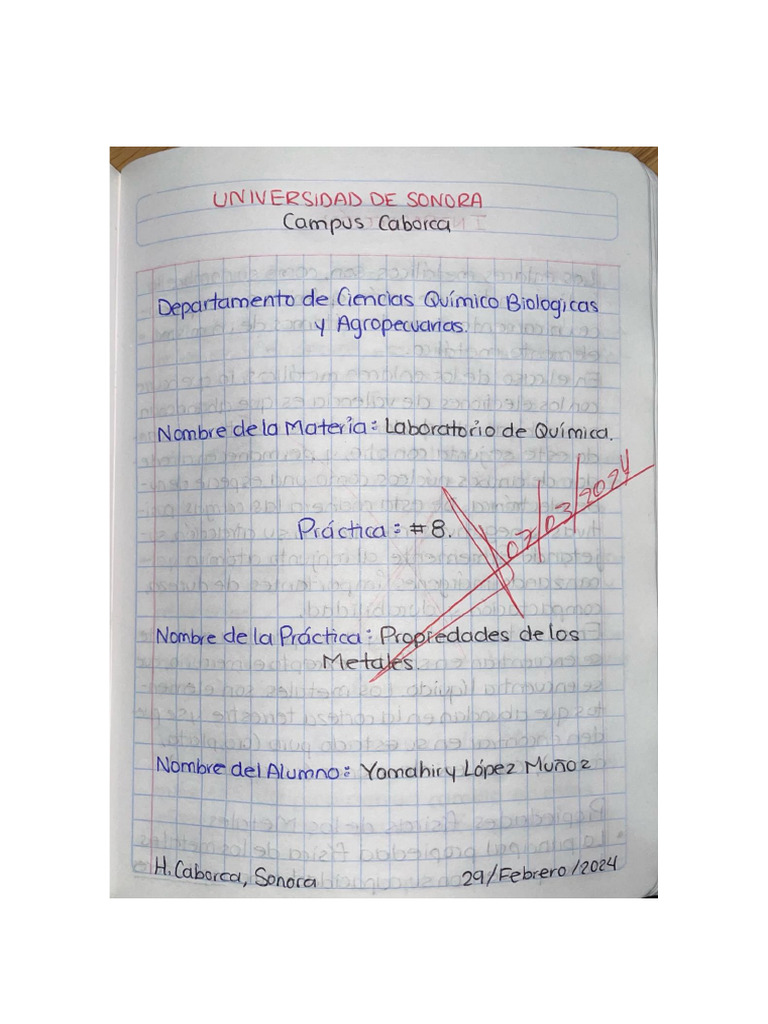 UNIVERSIDAD DE SONORA
Campus Caborca
Departamento de Ciencias Químico Biologicas
y Agropecuarias.
Nombre de la Materia: Laboratorio de Química.
Práctica: #8.
07/03/2024
Nombre de la Práctica: Propiedades de los
Metales.
Nombre del Alumno: Yomahiry López Muñoz
H. Caborca, Sonora
29/Febrero/2024